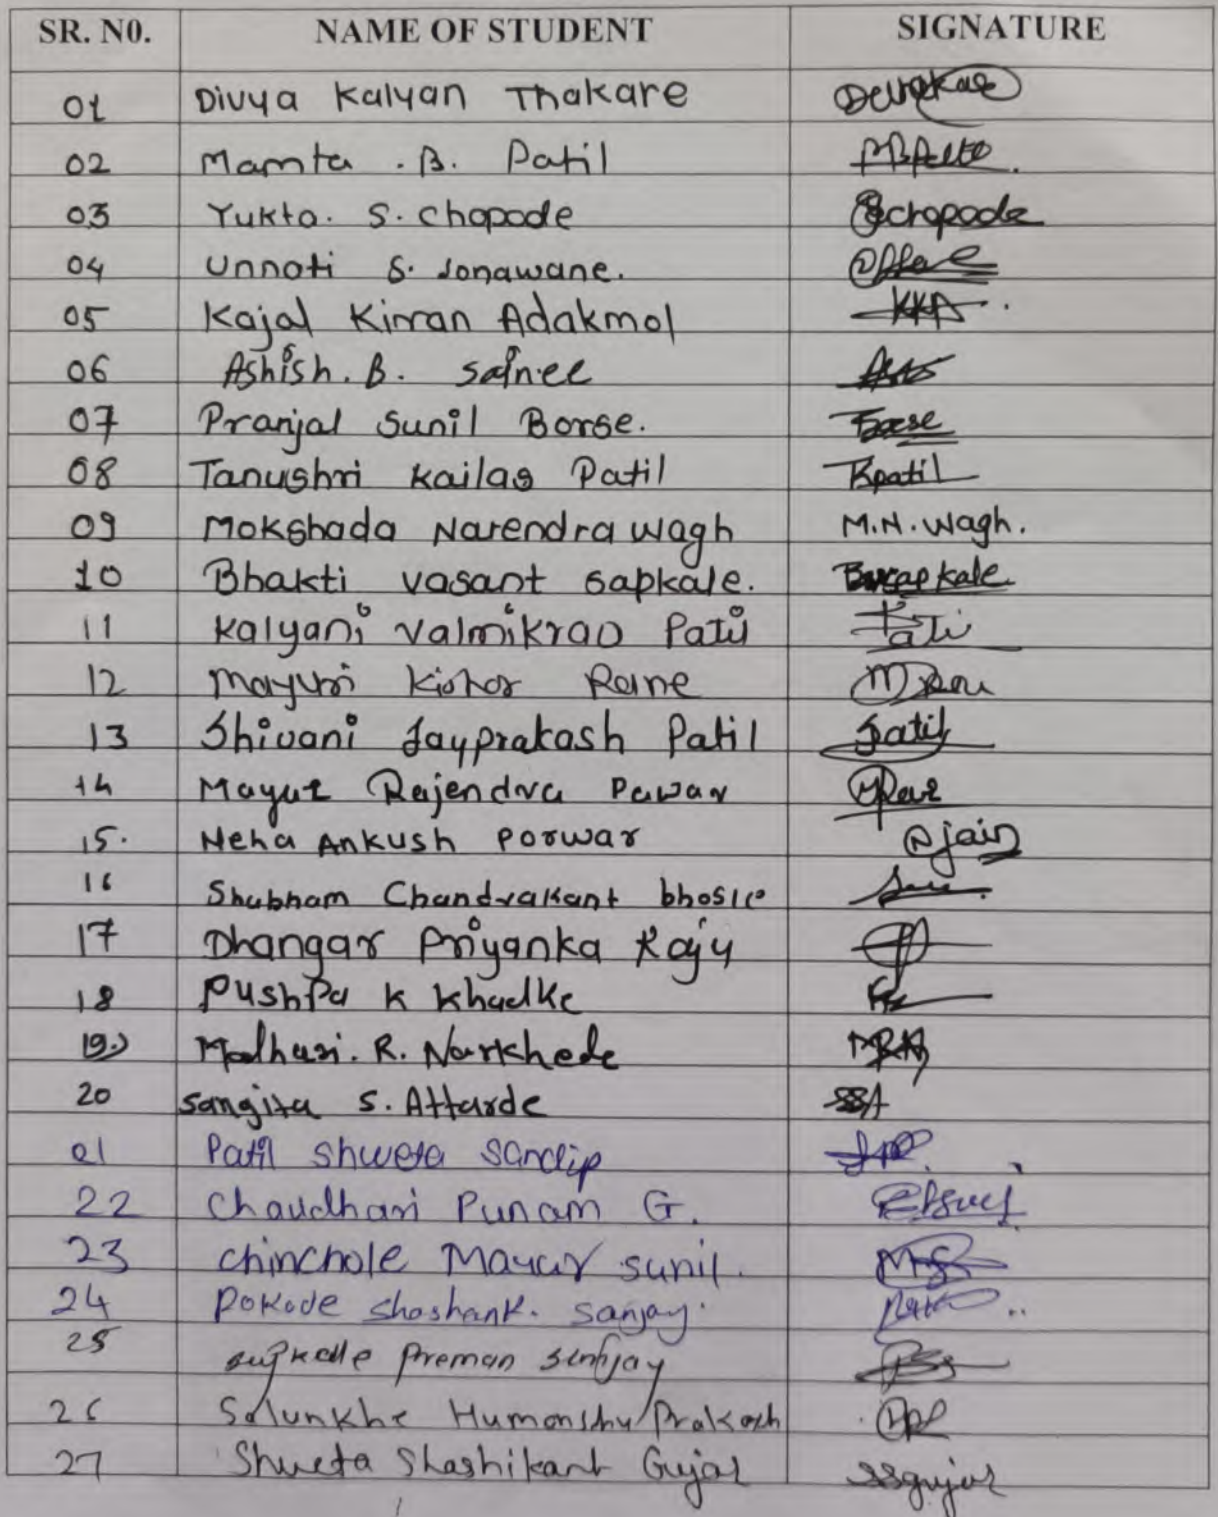 SR. N0. NAME OF STUDENT SIGNATURE
01 Divya Kalyan Thakare
02 Mamta . B. Patil
03 Yukta. S. Chopade Schopade
04 Unnati S. Sonawane.
05 Kajal Kirran Adakmol KKA
06 Ashish. B.
07 Pranjal Sunil Borse. Borse
08 Tanushri Kailas Patil TKpatil
09 Mokshada Narendra Wagh M.N. Wagh.
10 Bhakti vasant sapkale. BVsapkale
11 Kalyani Valmikrao Patil
12 Mayuri Kishor Rane
13 Shivani Jayprakash Patil
14 Mayur Rajendra Pawar
15. Neha Ankush Porwar Njain
16 Shubham Chandrakant bhosle
17 Dhangar Priyanka Raju
18 Pushpa K Khadke
19.) Madhuri. R. Narkhede MRN
20 Sangita S. Attarde SSA
21 Patil Shweta Sandip
22 Chaudhari Punam G.
23 Chinchole Mayur Sunil.
24 Pokode Shashank. Sanjay.
25 Preman
26 Salunkhe Humanshu Prakash
27 Shweta Shashikant Gujar ssgujar